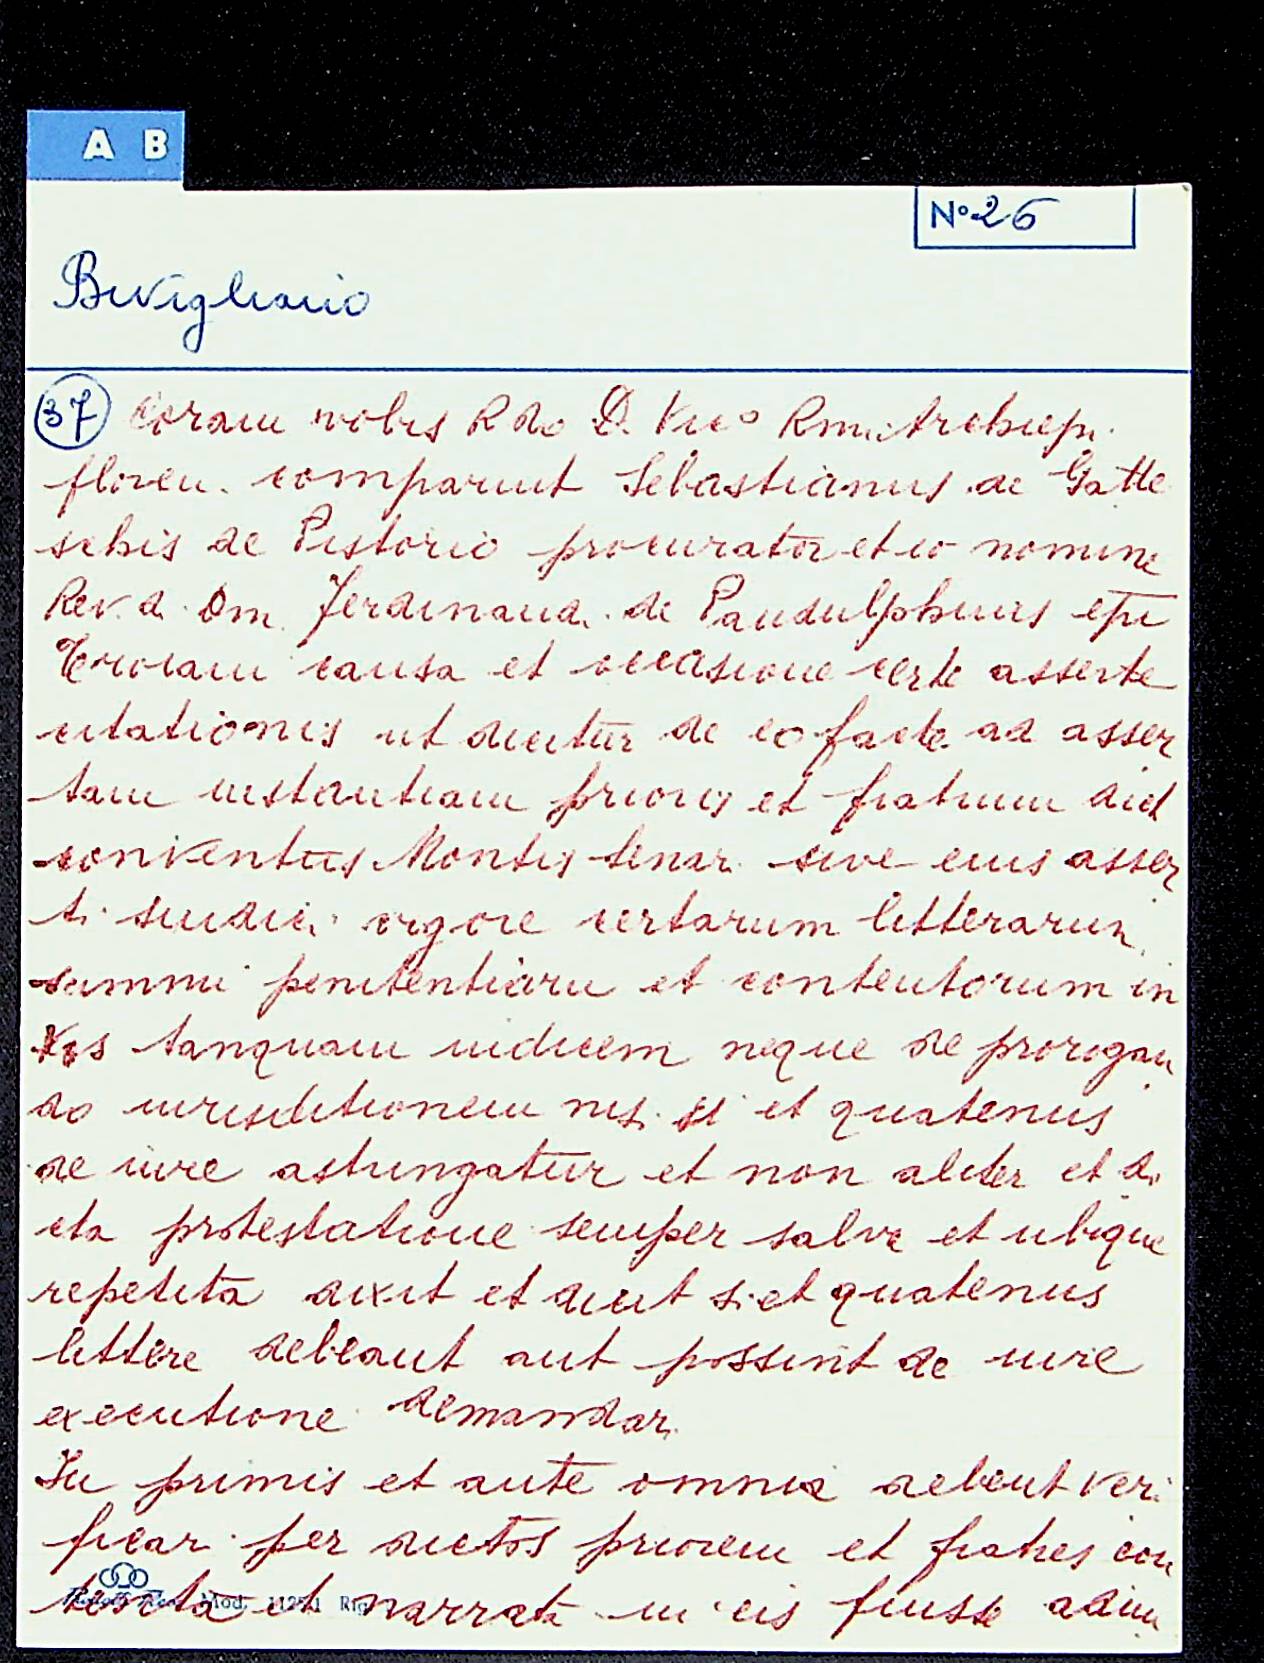 A B
N° 26
Bivigliano
37 Coram vobis Rdo D. Vico Rmi. Archiepi.
floren. comparuit Sebastianus de Gatte
schis de Pistorio procurator et eo nomine
Rev.d. Dm. Ferdinand. de Pandulphinis epi
Troiani causa et occasione certe asserte
citationis ut dicitur de eo facte ad asser
tam instantiam prioris et fratrum dict
conventus Montis Senar. sive eius asser
ti sindici vigore certarum litterarum
summi penitentiarii et contentorum in
tanquam iudicem neque de prorogan
do iurisditionem nis. si et quatenus
de iure astringatur et non aliter et di
cta protestatione semper salva et ubique
repetita dixit et dicit si et quatenus
littere debeant aut possint de iure
executione demandar.
In primis et ante omnia debent veri
ficar per dictos priorem et fratres con
tenta et narrata in eis fuisse
Mod.